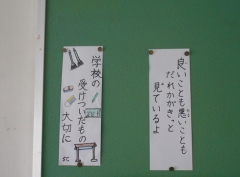 良いことも悪いことも
だれかがきっと
見ているよ
学校の
受けついだもの
大切に